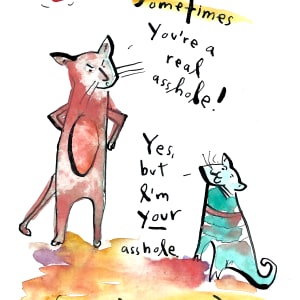 Sometimes
You're a
real
asshole!
Yes,
but
I'm
your
asshole